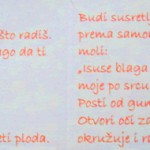 što radiš.
go da ti
ti ploda.
Budi susretlj
prema samom
moli:
„Isuse blaga
moje po srcu
Posti od gun
Otvori oči za
okružuje i ra